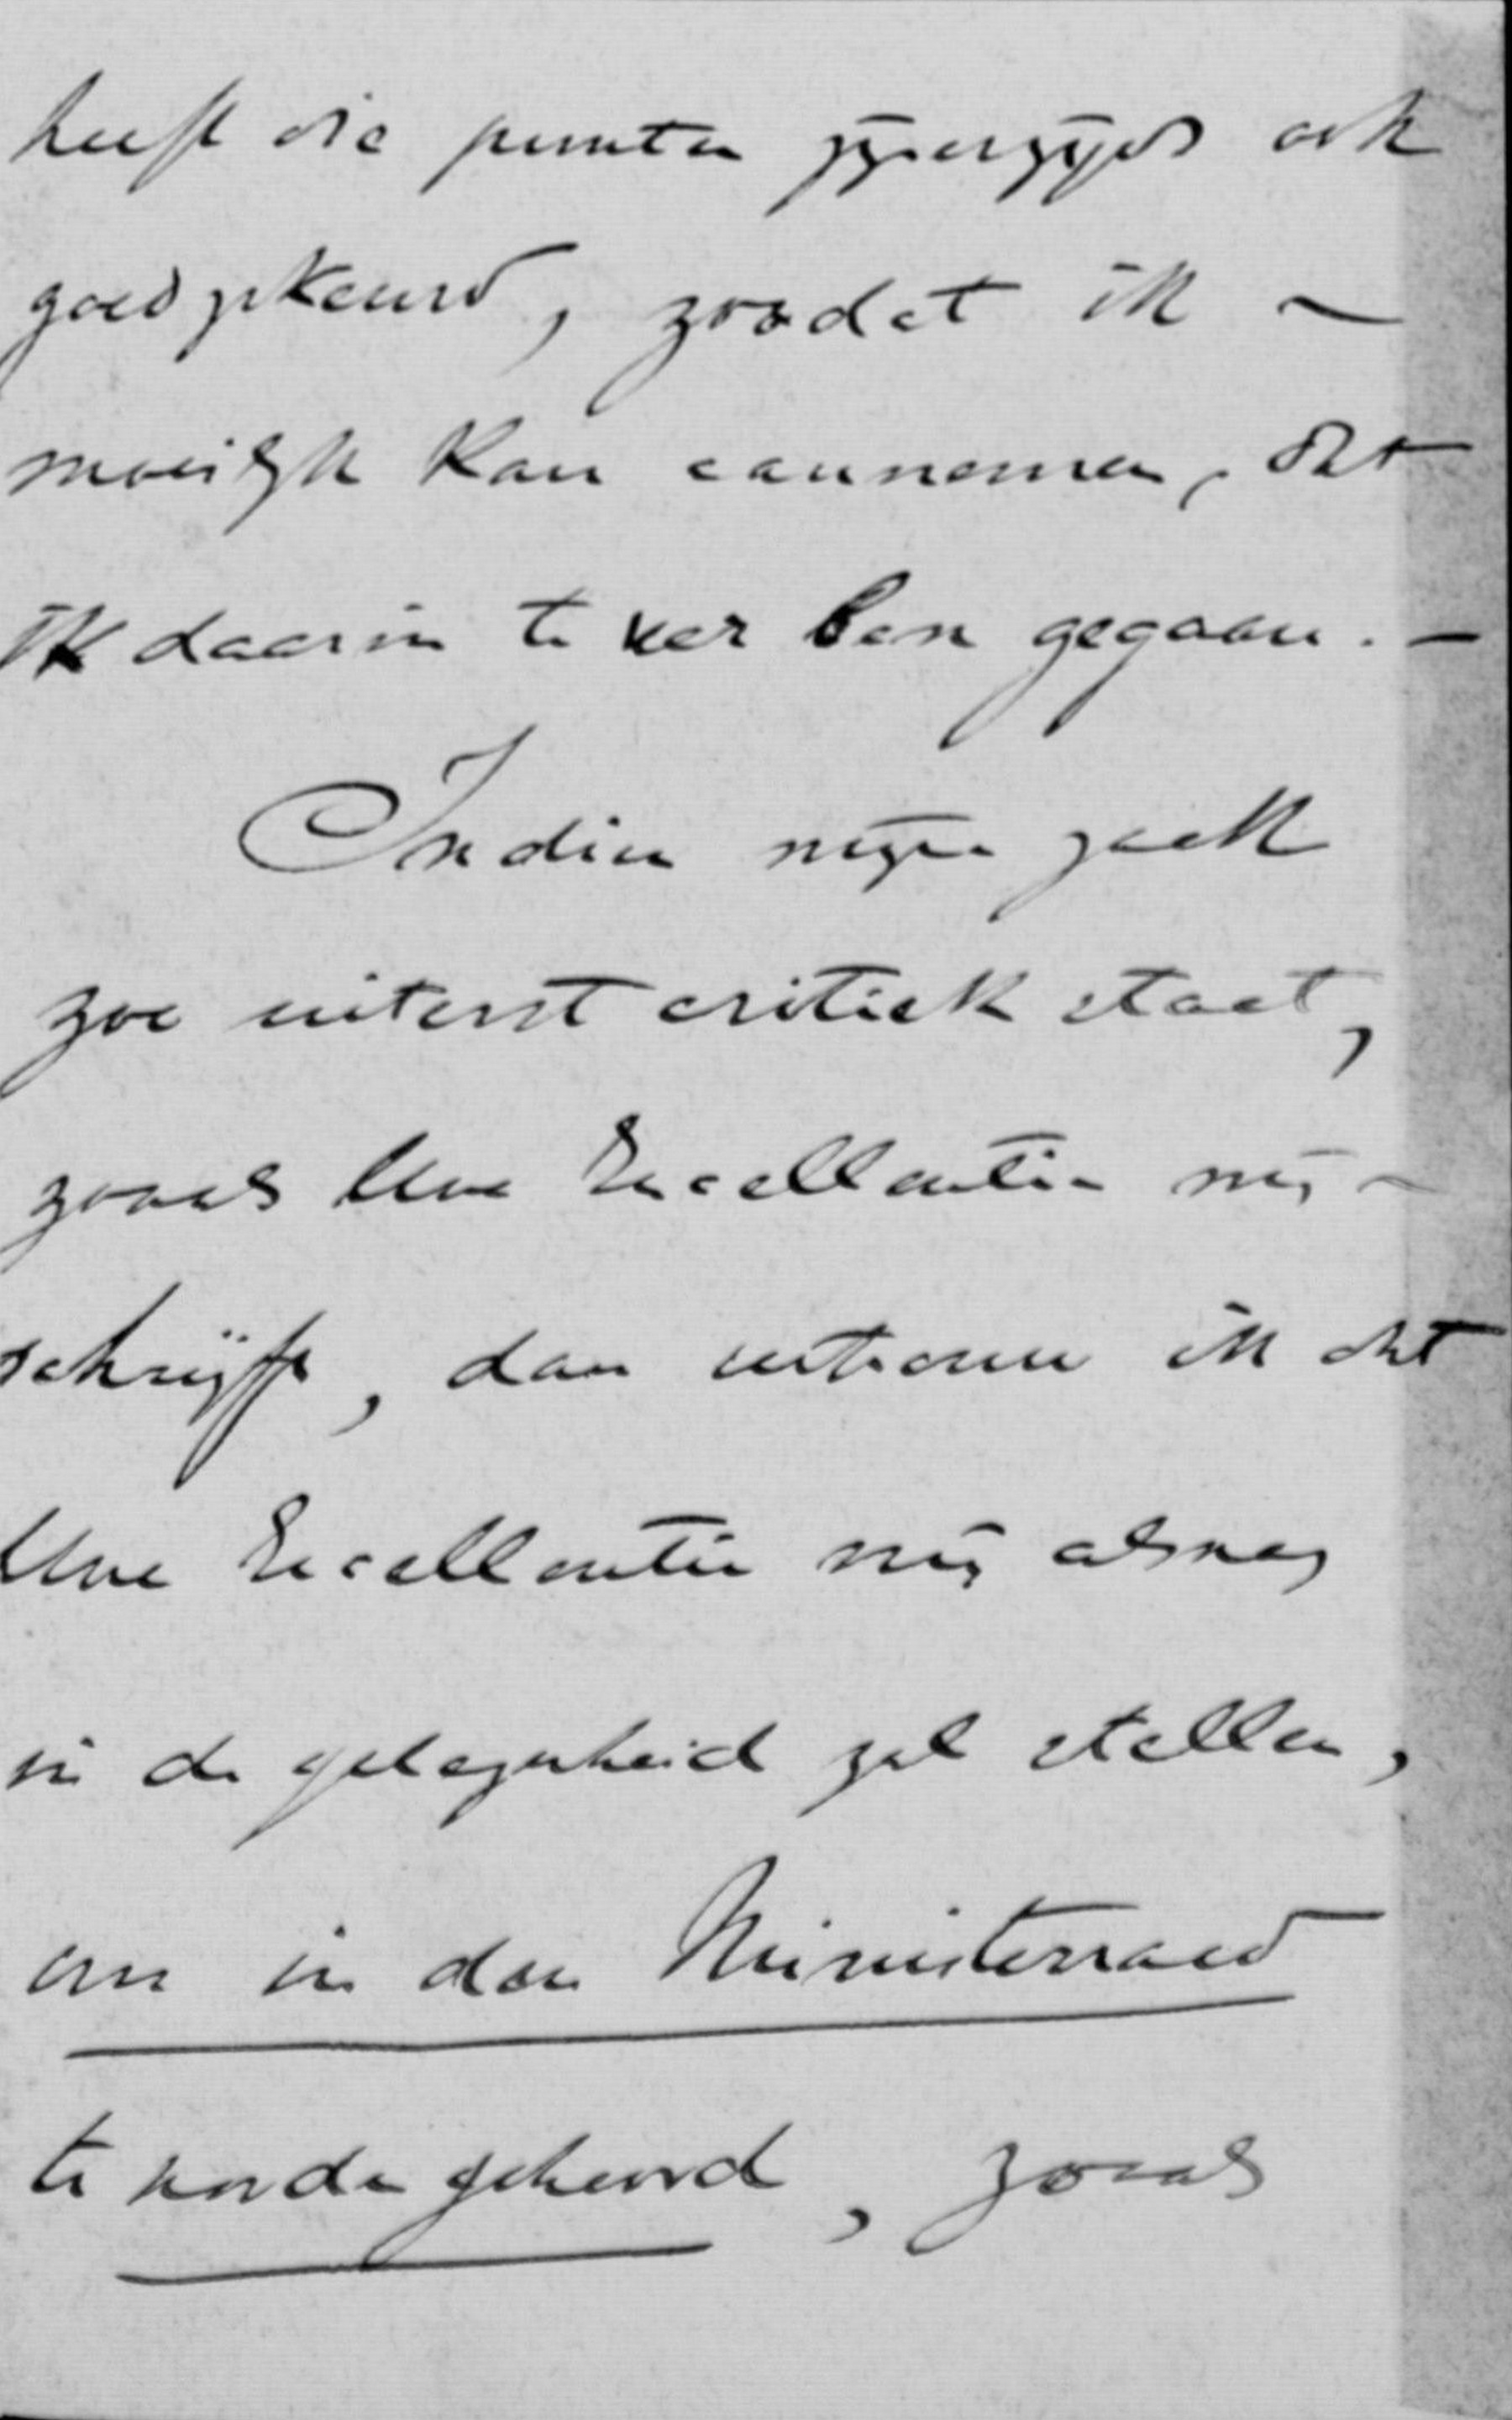 heeft die punten zijnerzijds ook
goedgekeurd, zoodat ik
moeilijk kan aannemen, dat
ik daarin te ver ben gegaan. —
Indien mijne zaak
zoo uiterst critiek staat,
zooals Uwe Excellentie mij
schrijft, dan vertrouw ik dat
Uwe Excellentie mij alsnog
in de gelegenheid zal stellen,
om in den Ministerraad
te worden gehoord, zooals